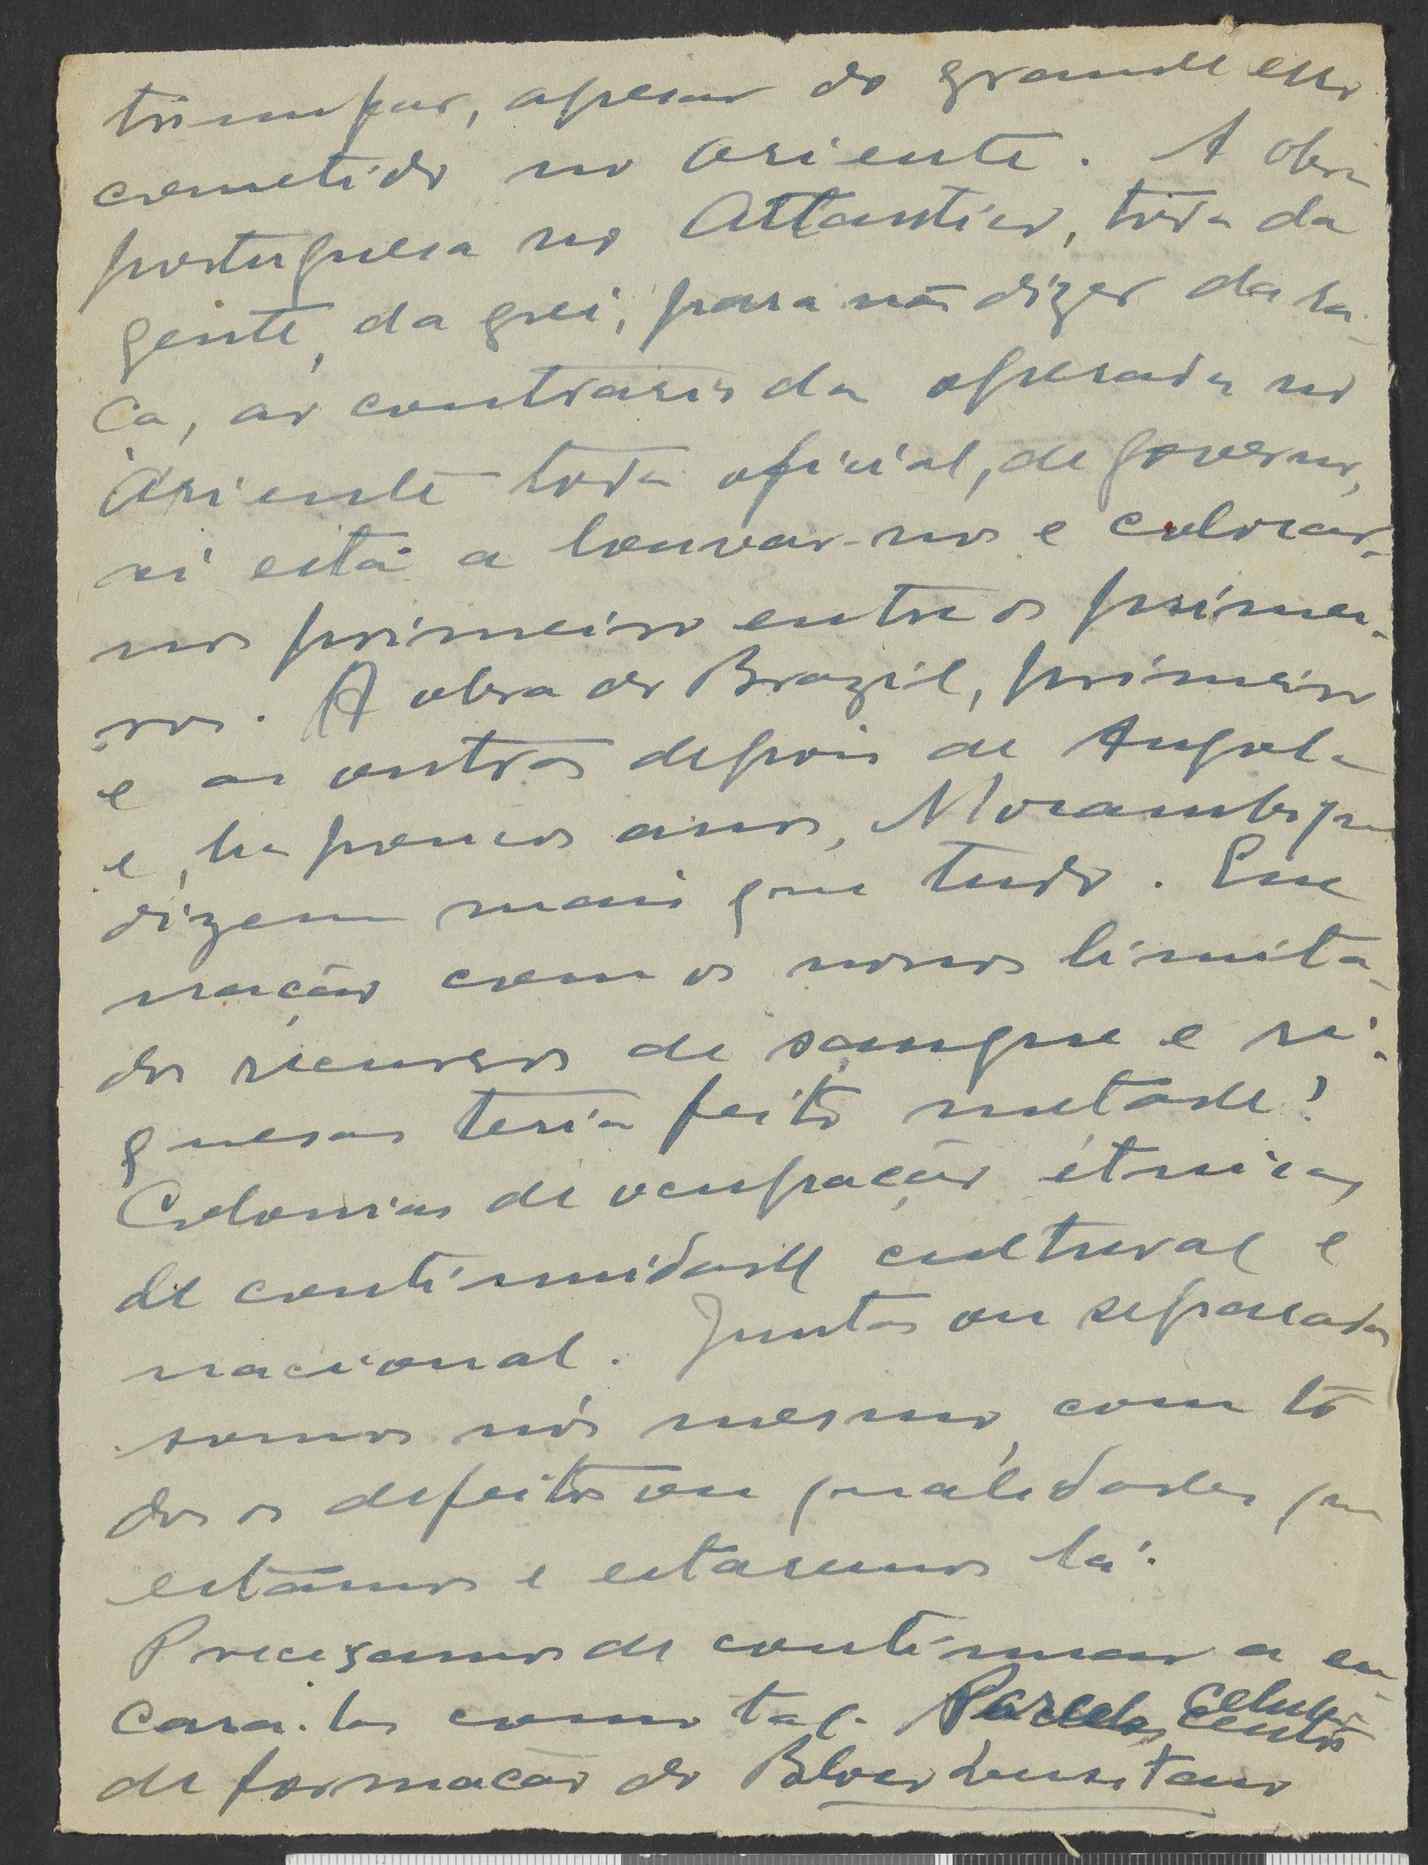 triumfar, apesar do grande erro
cometido no Oriente. A obra
portuguesa no Atlantico, toda da
gente, da grei, para não dizer da ra-
ça, ao contrario da operada no
Oriente toda oficial, de governo,
aí está a louvar-nos e colocar-
nos primeiro entre os primei-
ros. A obra do Brazil, primeiro
e as outras depois de Angola
e, ha poucos anos, Mocambique
dizem mais que tudo. Que
nação com os nossos limita-
dos recursos de sangue e ri-
quesas teria feito metade?
Colonias de ocupação étnica,
de continuidade cultural e
nacional. Juntos ou separados
somos nós mesmo, com to
dos os defeitos ou qualidades que
estâmos e estaremos lá.
Precizamos de continuar a en-
cara-las como tal. Parcelas, celulas
centro
de formação do Bloco Lusitano